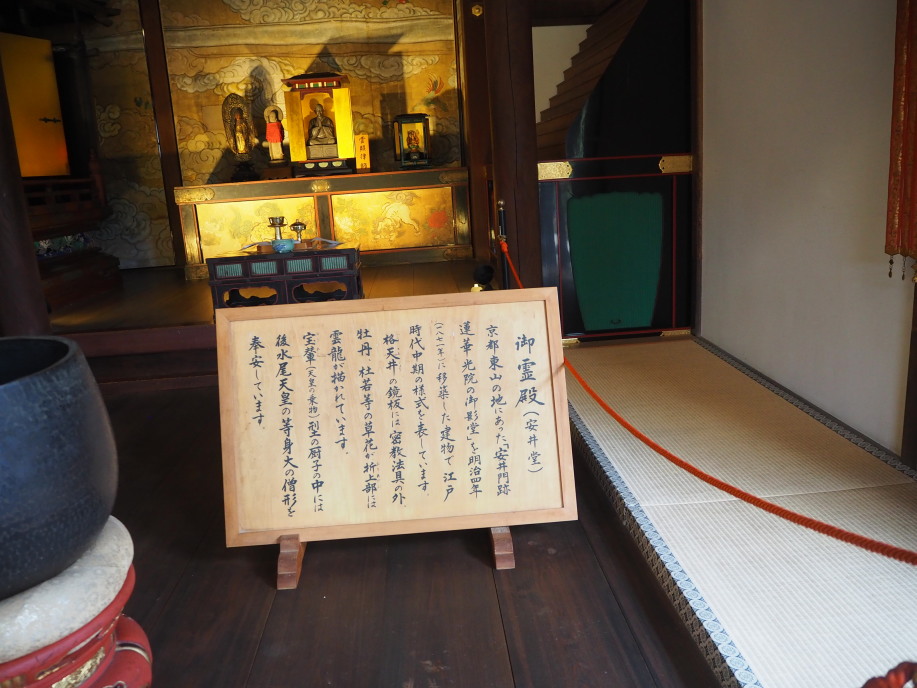 御霊殿(安井堂)
京都東山の地にあった「安井門跡
蓮華光院の御影堂」を明治四年
(一八七一年)に移築した建物で江戸
時代中期の様式を表しています。
格天井の鏡板には密教法具の外、
牡丹、杜若等の草花が折上部には
雲龍が描かれています。
宝輦(天皇の乗物)型の厨子の中には
後水尾天皇の等身大の僧形を
奉安しています。